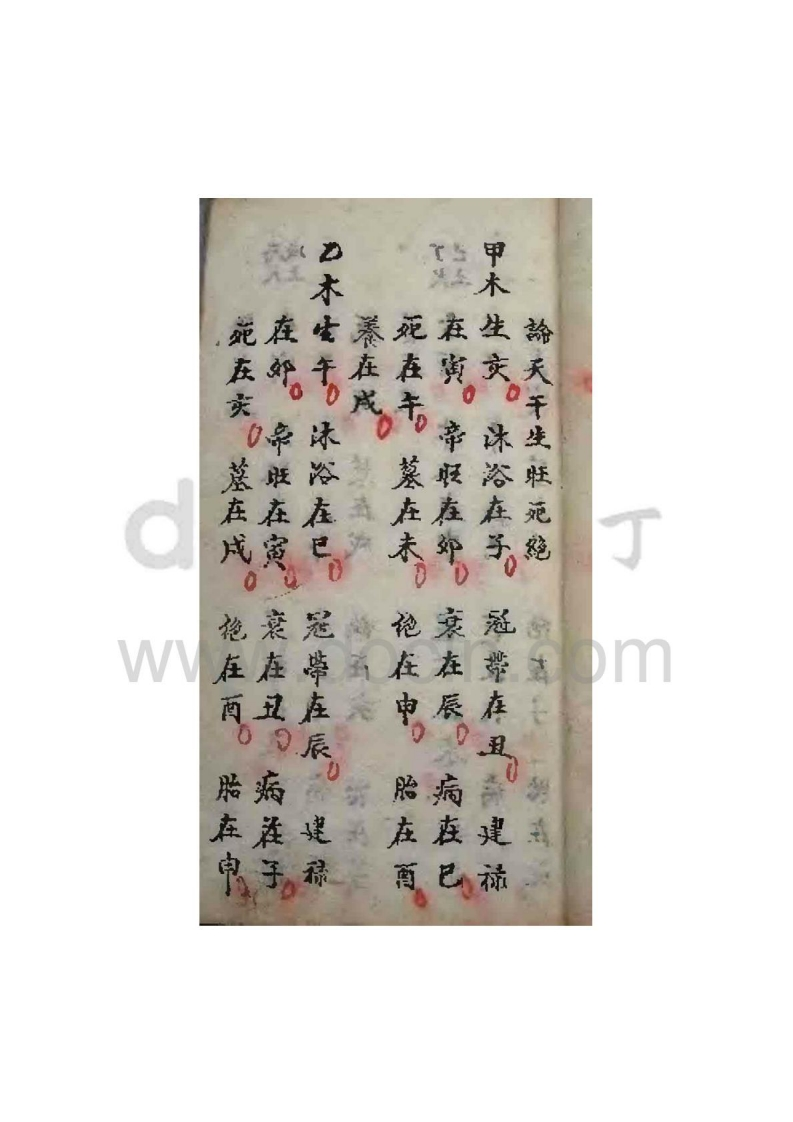 論天干生旺死絕
甲木生亥 沐浴在子 冠帶在丑 建祿
在寅 帝旺在卯 衰在辰 病在巳
死在午 墓在未 绝在申 胎在酉
養在戌
乙木生午 沐浴在巳 冠帶在辰 建祿
在卯 帝旺在寅 衰在丑 病在子
死在亥 墓在戌 绝在酉 胎在申
www.docin.com